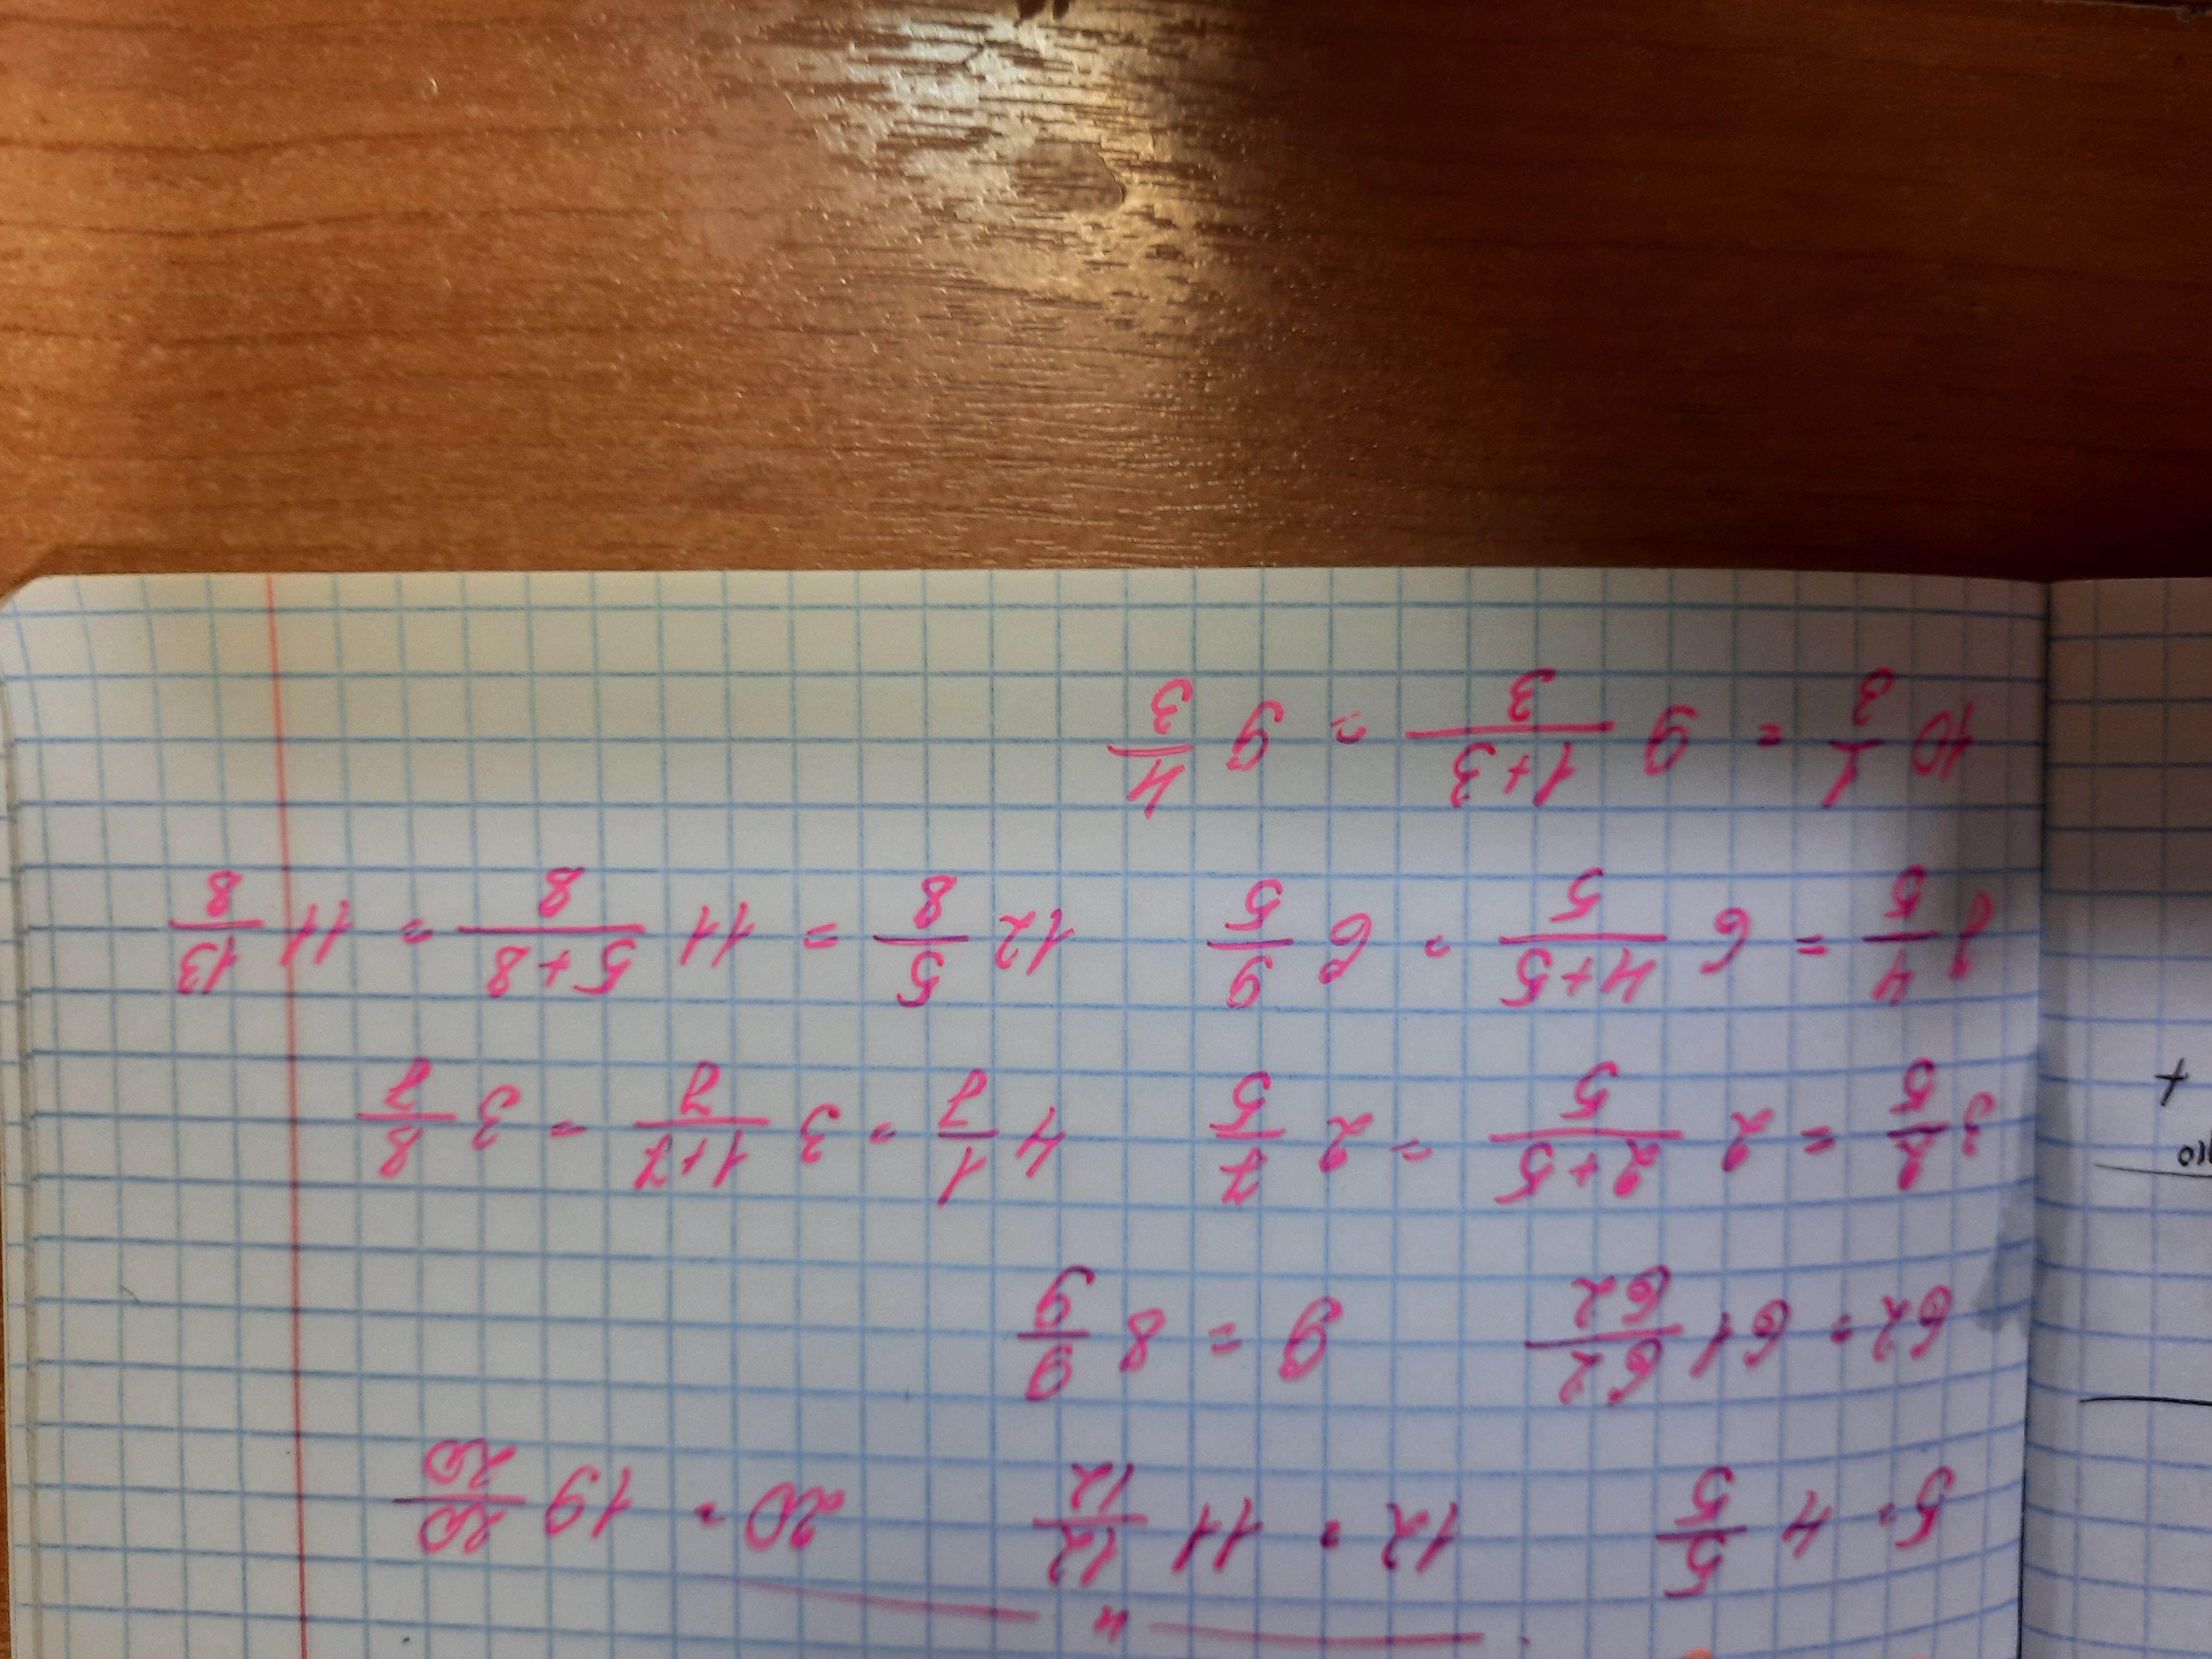 5 = 4 5/5 12 = 11 12/12 20 = 19 20/20
62 = 61 62/62 9 = 8 9/9
3 2/5 = 2 (2+5)/5 = 2 7/5 4 1/7 = 3 (1+7)/7 = 3 8/7
7 4/5 = 6 (4+5)/5 = 6 9/5 12 5/8 = 11 (5+8)/8 = 11 13/8
10 1/3 = 9 (1+3)/3 = 9 4/3